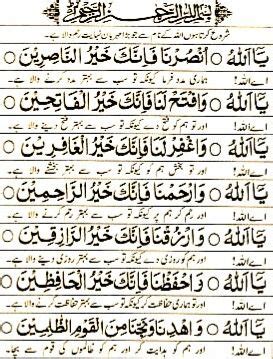 بسم الله الرحمن الرحيم
شروع کرتا ہوں اللہ کے نام سے جو بڑا مہربان نہایت رحم والا ہے۔
يَا اَللهُ ○ اُنْصُرْنَا فَاِنَّكَ خَيْرُ النَّاصِرِيْنَ ○
اے اللہ! ہماری مدد فرما کیونکہ تو سب سے بہتر مدد کرنے والا ہے۔
يَا اَللهُ ○ وَافْتَحْ لَنَا فَاِنَّكَ خَيْرُ الْفَاتِحِيْنَ ○
اے اللہ! اور تو ہم کو فتح دے کیونکہ تو سب سے بہتر فتح دینے والا ہے۔
يَا اَللهُ ○ وَاغْفِرْ لَنَا فَاِنَّكَ خَيْرُ الْغَافِرِيْنَ ○
اے اللہ! اور تو بخش ہم کو کیونکہ تو سب سے بہتر بخشنے والا ہے۔
يَا اَللهُ ○ وَارْحَمْنَا فَاِنَّكَ خَيْرُ الرَّاحِمِيْنَ ○
اے اللہ! اور رحم کر ہم پر کیونکہ تو سب سے بہتر رحم کرنے والا ہے۔
يَا اَللهُ ○ وَارْزُقْنَا فَاِنَّكَ خَيْرُ الرَّازِقِيْنَ ○
اے اللہ! اور ہم کو روزی دے کیونکہ تو سب سے بہتر روزی دینے والا ہے۔
يَا اَللهُ ○ وَاحْفَظْنَا فَاِنَّكَ خَيْرُ الْحَافِظِيْنَ ○
اے اللہ! اور تو ہماری حفاظت کر کیونکہ تو سب سے بہتر حفاظت کرنے والا ہے۔
يَا اَللهُ ○ وَاهْدِنَا وَنَجِّنَا مِنَ الْقَوْمِ الظّٰلِمِيْنَ ○
اے اللہ! اور ہم کو ہدایت کر اور ہم کو ظالموں کی قوم سے بچا۔